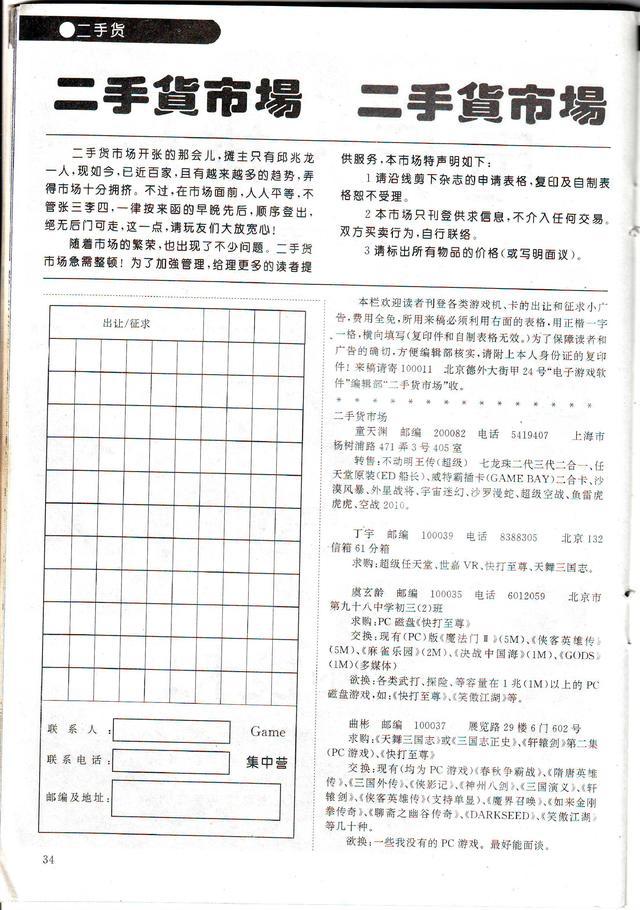 ●二手货
二手貨市場 二手貨市場
二手货市场开张的那会儿,摊主只有邱兆龙
一人,现如今,已近百家,且有越来越多的趋势,弄
得市场十分拥挤。不过,在市场面前,人人平等,不
管张三李四,一律按来函的早晚先后,顺序登出,
绝无后门可走,这一点,请玩友们大放宽心!
随着市场的繁荣,也出现了不少问题。二手货
市场急需整顿!为了加强管理,给理更多的读者提
供服务,本市场特声明如下:
1 请沿线剪下杂志的申请表格,复印及自制表
格恕不受理。
2 本市场只刊登供求信息,不介入任何交易。
双方买卖行为,自行联络。
3 请标出所有物品的价格(或写明面议)。
出让/征求
联系人:
Game
联系电话:
集中营
邮编及地址:
本栏欢迎读者刊登各类游戏机、卡的出让和征求小广
告,费用全免,所用来稿必须利用右面的表格,用正楷一字
一格,横向填写(复印件和自制表格无效。)为了保障读者和
广告的确切,方便编辑部核实,请附上本人身份证的复印
件!来稿请寄 100011 北京德外大街甲 24 号“电子游戏软
件”编辑部“二手货市场”收。
* * * * * * * * * * * * * * * * *
二手货市场
童天渊 邮编 200082 电话 5419407 上海市
杨树浦路 471 弄 3 号 405 室
转售:不动明王传(超级) 七龙珠二代三代二合一、任
天堂原装(ED 船长)、威特霸插卡(GAME BAY)二合卡、沙
漠风暴、外星战将、宇宙迷幻、沙罗漫蛇、超级空战、鱼雷虎
虎虎、空战 2010。
丁宇 邮编 100039 电话 8388305 北京 132
信箱 61 分箱
求购:超级任天堂、世嘉 VR、快打至尊、天舞三国志。
虞玄龄 邮编 100035 电话 6012059 北京市
第九十八中学初三(2)班
求购:PC 磁盘《快打至尊》
交换:现有(PC)版《魔法门Ⅱ》(5M)、《侠客英雄传》
(5M)、《麻雀乐园》(2M)、《决战中国海》(1M)、《GODS》
(1M)(多媒体)
欲换:各类武打、探险、等容量在 1 兆(1M)以上的 PC
磁盘游戏,如:《快打至尊》、《笑傲江湖》等。
曲彬 邮编 100037 展览路 29 楼 6 门 602 号
求购:《天舞三国志》或《三国志正史》、《轩辕剑》第二集
(PC 游戏)、《快打至尊》
交换:现有(均为 PC 游戏)《春秋争霸战》、《隋唐英雄
传》、《三国外传》、《侠影记》、《神州八剑》、《三国演义》、《轩
辕剑》、《侠客英雄传》(支持单显)、《魔界召唤》、《如来金刚
拳传奇》、《聊斋之幽谷传奇》、《DARKSEED》、《笑傲江湖》
等几十种。
欲换:一些我没有的 PC 游戏。最好能面谈。
34